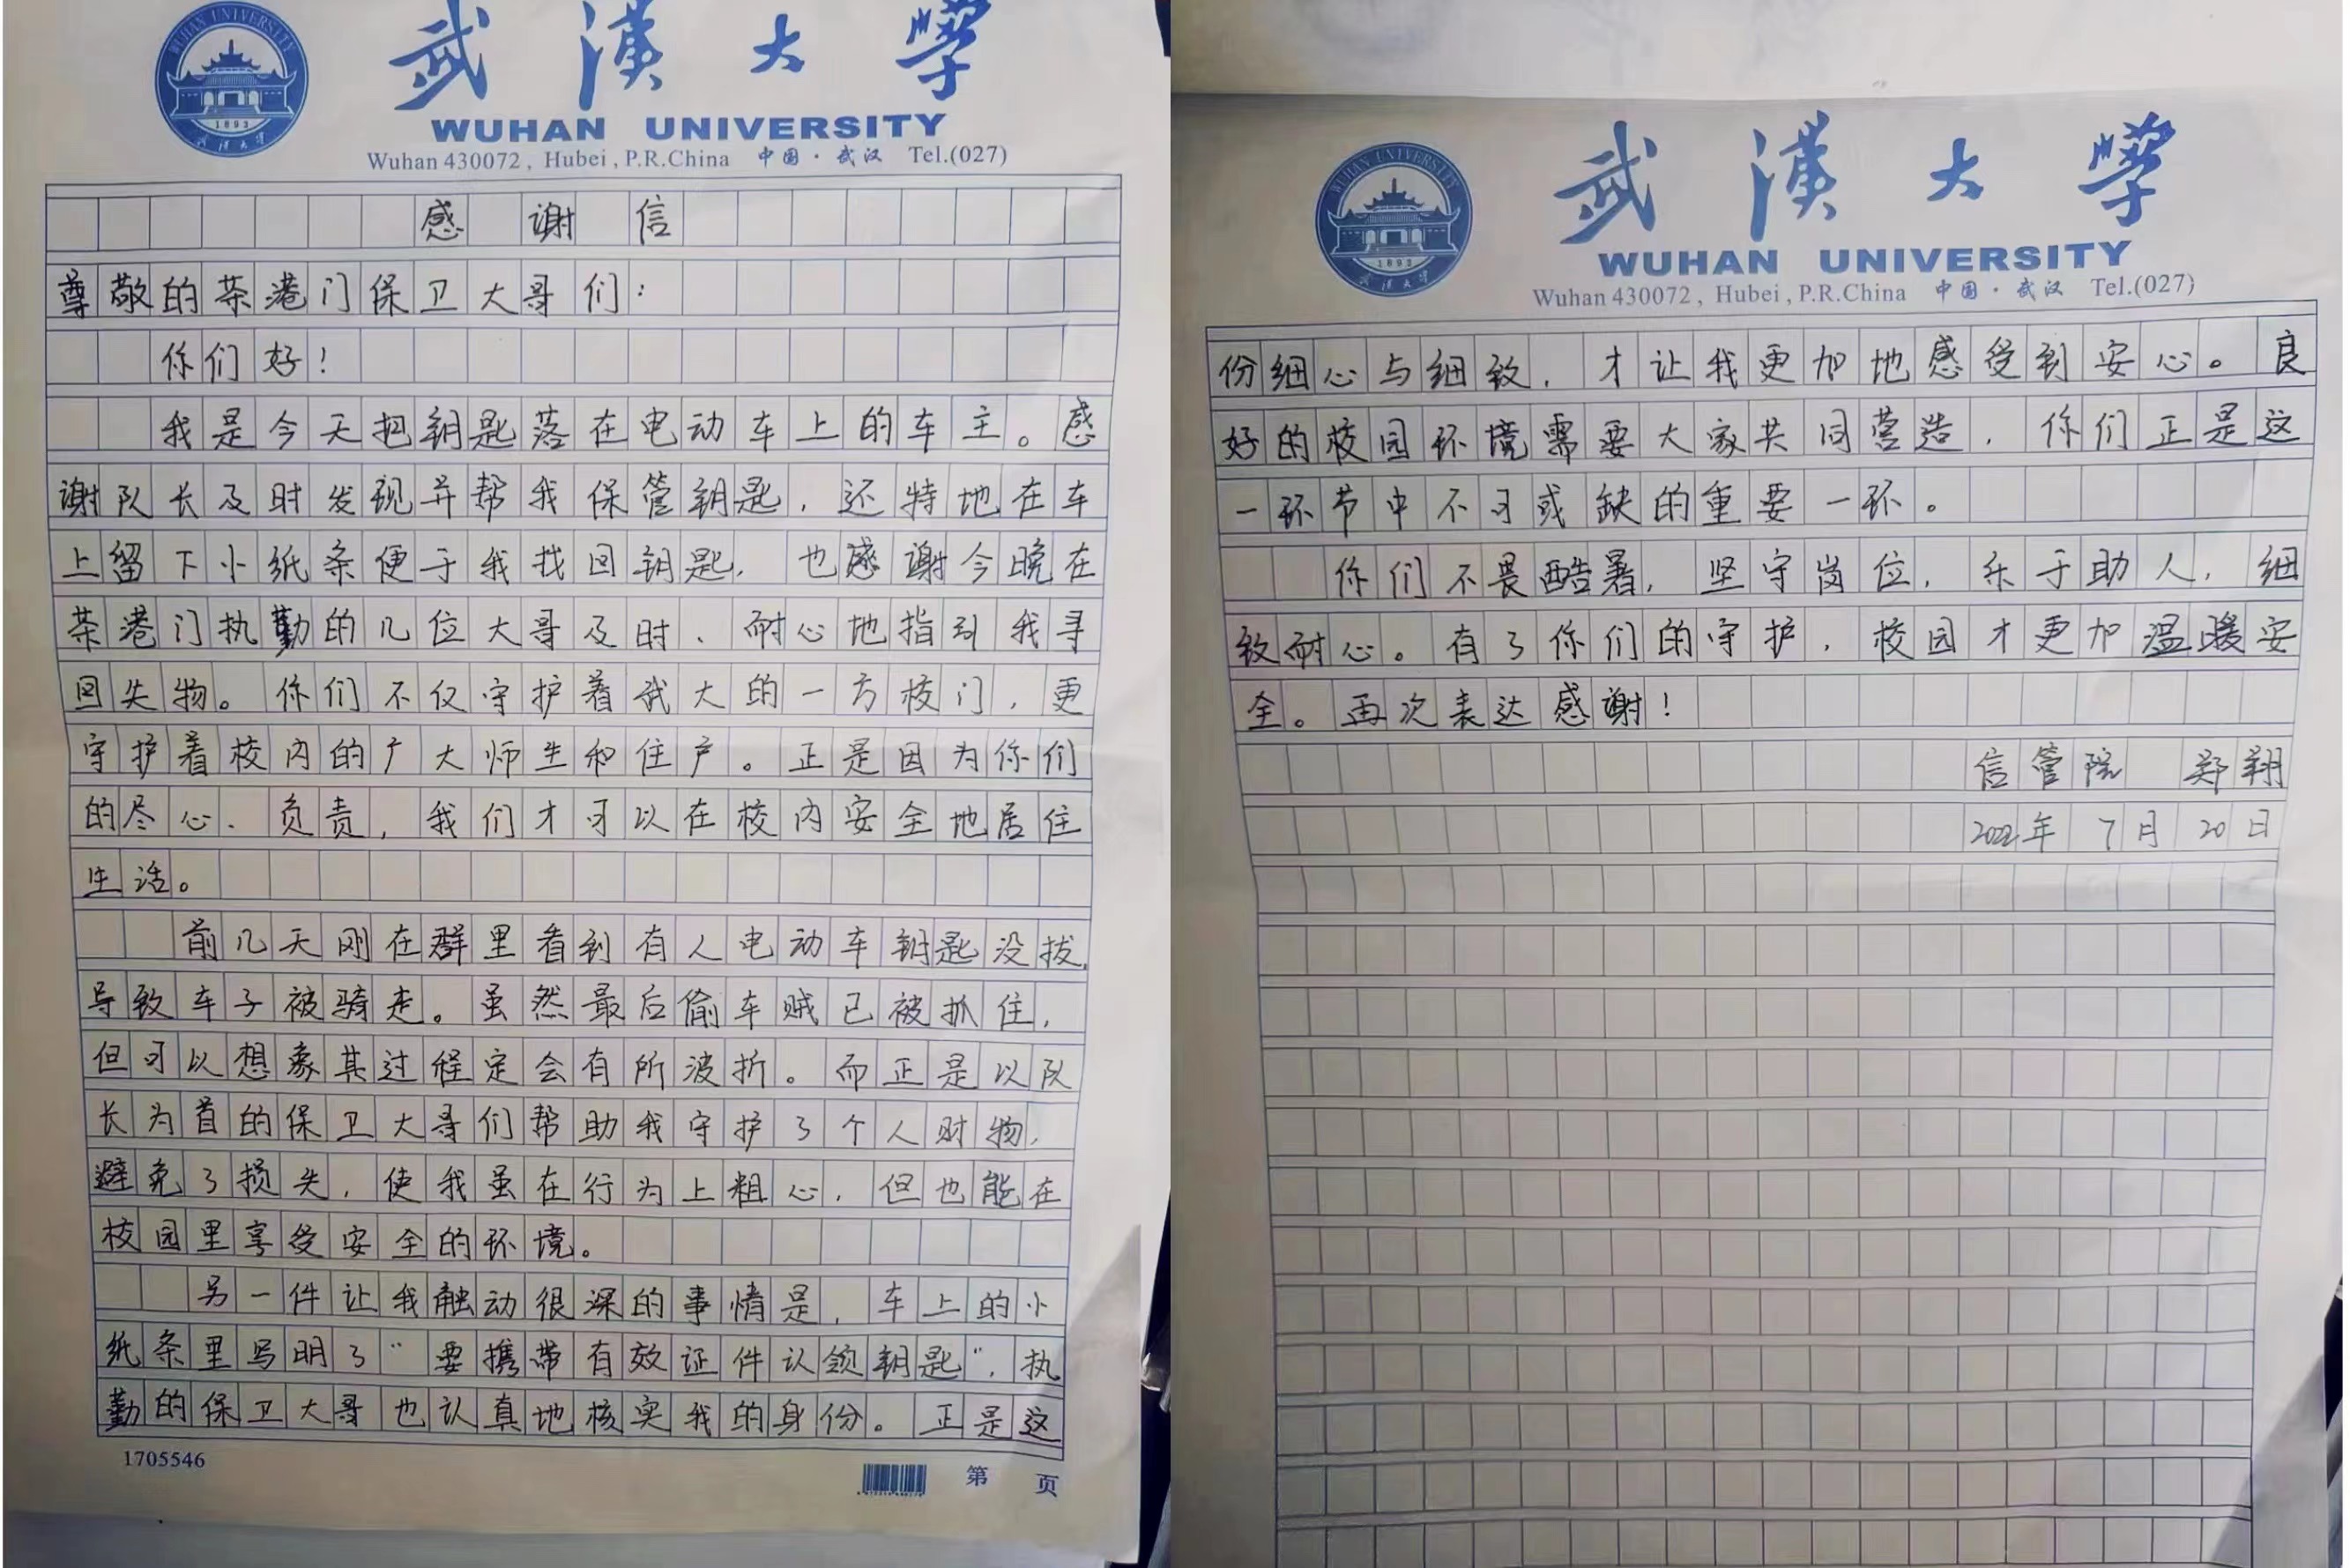 WUHAN UNIVERSITY
1893
武汉大学
武漢大學
WUHAN UNIVERSITY
Wuhan 430072, Hubei, P.R.China 中国·武汉 Tel.(027)
感谢信
尊敬的茶港门保卫大哥们：
你们好！
我是今天把钥匙落在电动车上的车主。感
谢队长及时发现并帮我保管钥匙，还特地在车
上留下小纸条便于我找回钥匙，也感谢今晚在
茶港门执勤的几位大哥及时、耐心地指引我寻
回失物。你们不仅守护着武大的一方校门，更
守护着校内的广大师生和住户。正是因为你们
的尽心、负责，我们才可以在校内安全地居住
生活。
前几天刚在群里看到有人电动车钥匙没拔，
导致车子被骑走。虽然最后偷车贼已被抓住，
但可以想象其过程定会有所波折。而正是以队
长为首的保卫大哥们帮助我守护了个人财物，
避免了损失，使我虽在行为上粗心，但也能在
校园里享受安全的环境。
另一件让我触动很深的事情是，车上的小
纸条里写明了“要携带有效证件认领钥匙”，执
勤的保卫大哥也认真地核实我的身份。正是这
1705546
第 页
WUHAN UNIVERSITY
1893
武汉大学
武漢大學
WUHAN UNIVERSITY
Wuhan 430072, Hubei, P.R.China 中国·武汉 Tel.(027)
份细心与细致，才让我更加地感受到安心。良
好的校园环境需要大家共同营造，你们正是这
一环节中不可或缺的重要一环。
你们不畏酷暑，坚守岗位，乐于助人，细
致耐心。有了你们的守护，校园才更加温暖安
全。再次表达感谢！
信管院 郑翔
2022年 7月 20日